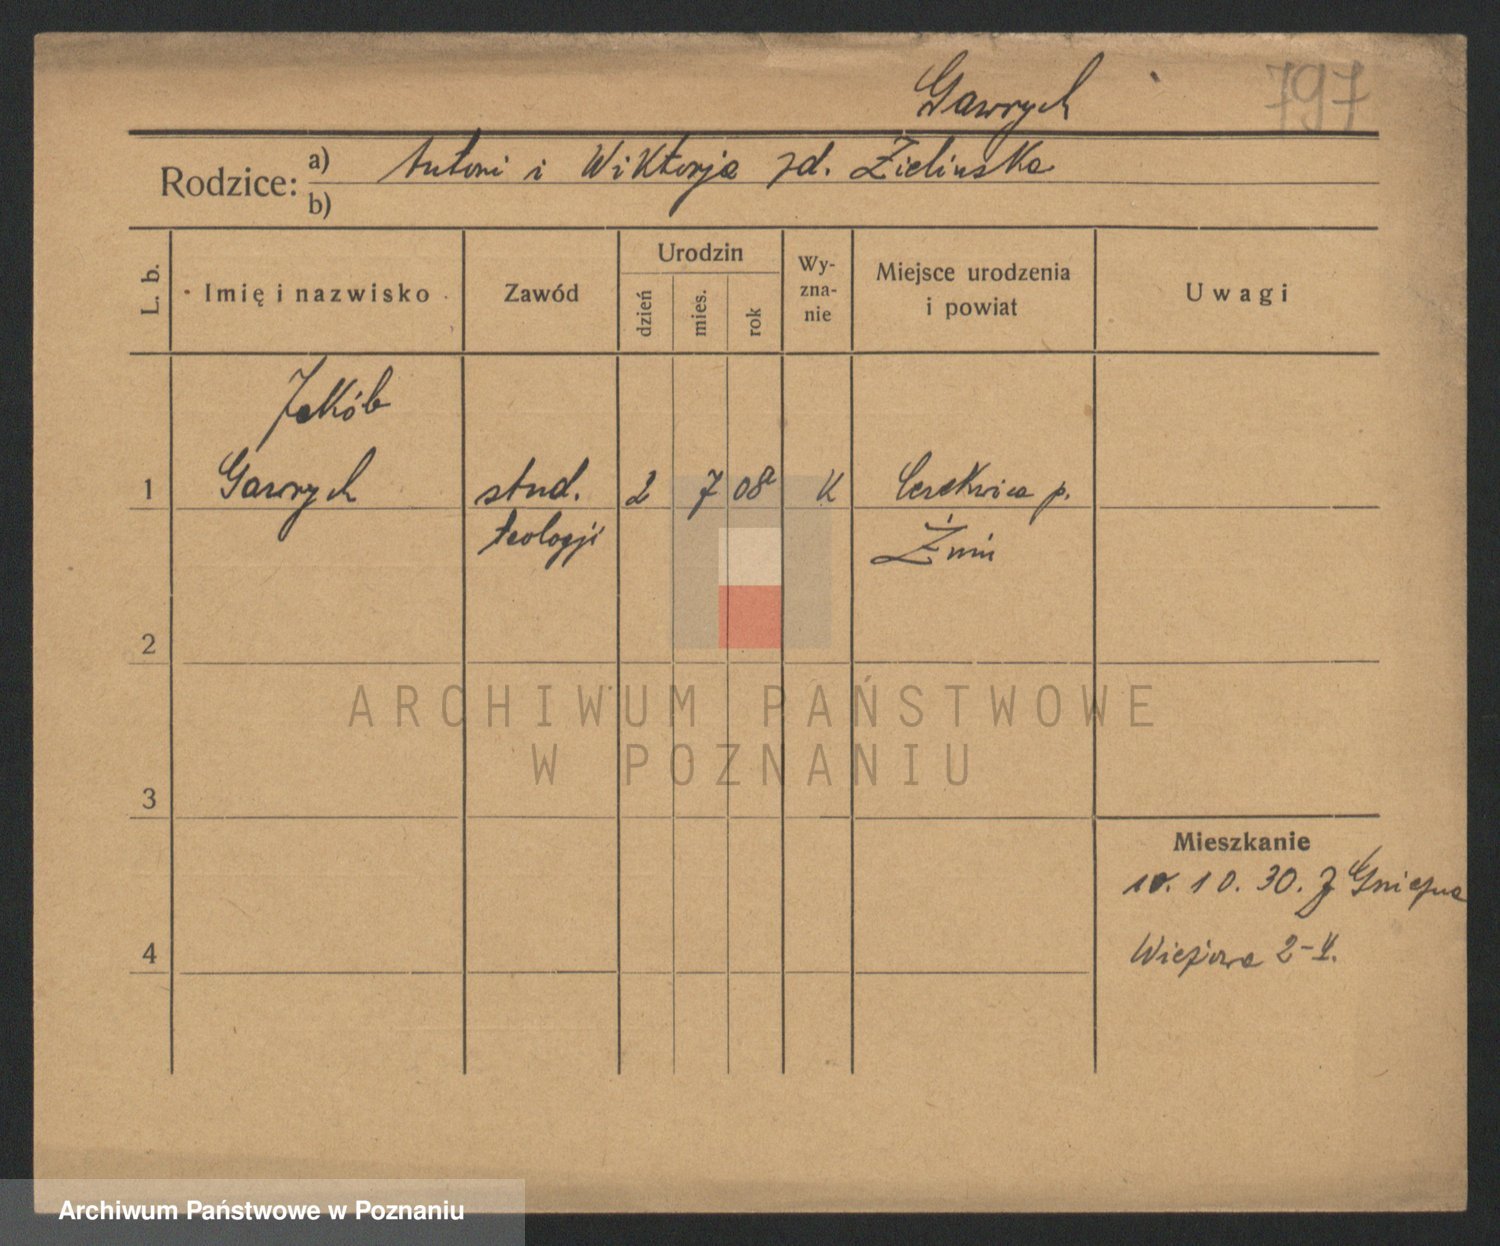 Gawrych
797
Rodzice: a) Antoni i Wiktorja zd. Zielinska
b)
L. b.
Imię i nazwisko
Zawód
Urodzin
dzień
mies.
rok
Wy-
zna-
nie
Miejsce urodzenia
i powiat
Uwagi
Jakób
1 Gawrych stud. 2 7 08 K Cerekwica p.
teologji Żnin
2
ARCHIWUM PAŃSTWOWE
W POZNANIU
3
Mieszkanie
10. 30. z Gniezna
4 Wieżowa 2-4.
Archiwum Państwowe w Poznaniu